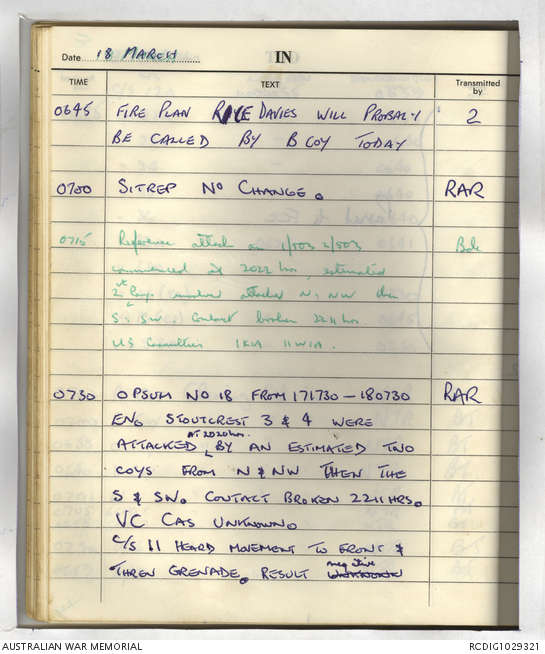 Date 18 MARCH IN
TIME TEXT Transmitted by
0645 FIRE PLAN DAVIES WILL PROBALY 2
BE CALLED BY B COY TODAY
0700 SITREP NO CHANGE. RAR
0715 Reference attack on 1/503 2/503 Bde
commenced at 2022 hrs, estimated
2 Coys involved attacked N, NW then
S & SW. Contact broken 2211 hrs.
US Casualties 1KIA 11WIA.
0730 OPSUM NO 18 FROM 171730 - 180730 RAR
ENG STOUTCREST 3 & 4 WERE
AT 2020 hrs.
ATTACKED BY AN ESTIMATED TWO
COYS FROM N & NW THEN THE
S & SW. CONTACT BROKEN 2211 HRS.
VC CAS UNKNOWN.
C/S 11 HEARD MOVEMENT TO FRONT &
THREN GRENADE. RESULT negitive
AUSTRALIAN WAR MEMORIAL RCDIG1029321